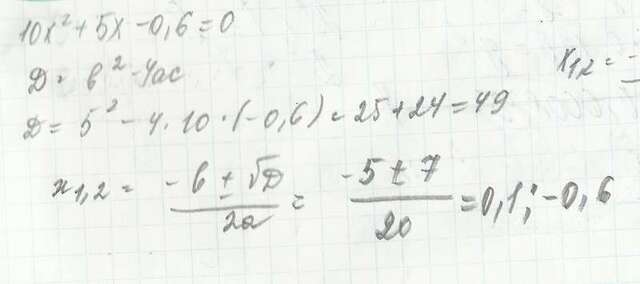 10x² + 5x - 0,6 = 0
x₁,₂ = -
D = b² - 4ac
D = 5² - 4 · 10 · (-0,6) = 25 + 24 = 49
x₁,₂ = (-b ± √D)/2a = (-5 ± 7)/20 = 0,1; -0,6